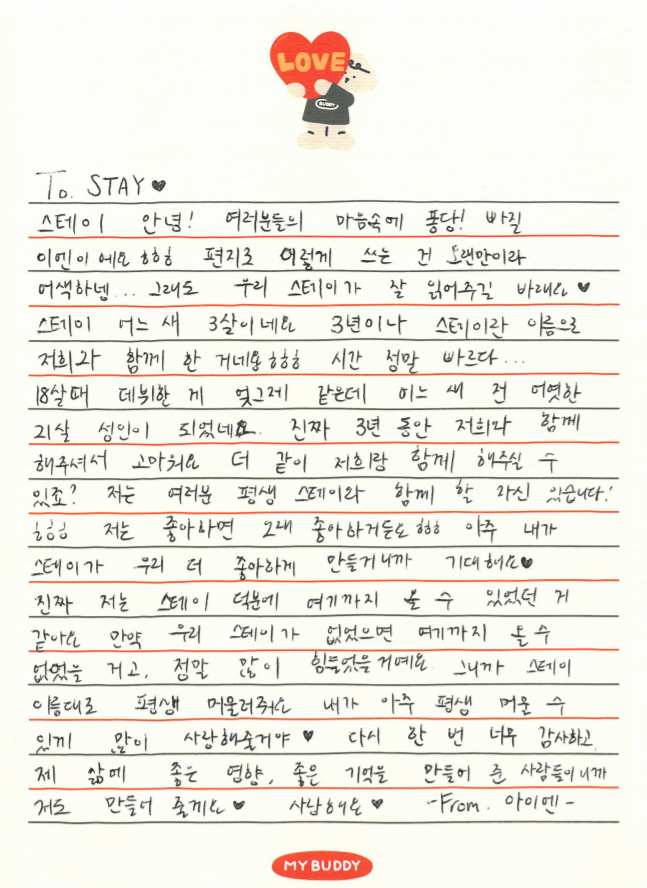 LOVE
BUDDY
To. STAY ♥
스테이 안녕! 여러분들의 마음속에 퐁당! 빠질
이엔이에요 ㅎㅎㅎ 편지로 이렇게 쓰는 건 오랜만이라
어색하넹... 그래도 우리 스테이가 잘 읽어주길 바래요 ♥
스테이 어느 새 3살이네요 3년이나 스테이란 이름으로
저희와 함께 한 거네용 ㅎㅎㅎ 시간 정말 빠르다...
18살때 데뷔한 게 엊그제 같은데 어느 새 전 어엿한
21살 성인이 되었네요. 진짜 3년 동안 저희와 함께
해주셔서 고마워요 더 같이 저희랑 함께 해주실 수
있죠? 저는 여러분 평생 스테이와 함께 할 자신 있습니다!
ㅎㅎㅎ 저는 좋아하면 오래 좋아하거든요 ㅎㅎㅎ 아주 내가
스테이가 우리 더 좋아하게 만들거니까 기대해요♥
진짜 저는 스테이 덕분에 여기까지 올 수 있었던 거
같아요 만약 우리 스테이가 없었으면 여기까지 올 수
없었을 거고, 정말 많이 힘들었을거예요 그니까 스테이
이름대로 평생 머물러줘요 내가 아주 평생 머물 수
있게 많이 사랑해줄거야 ♥ 다시 한 번 너무 감사하고
제 삶에 좋은 영향, 좋은 기억을 만들어 준 사람들이니까
저도 만들어 줄게요 ♥ 사랑해요 ♥ -From. 아이엔-
MY BUDDY